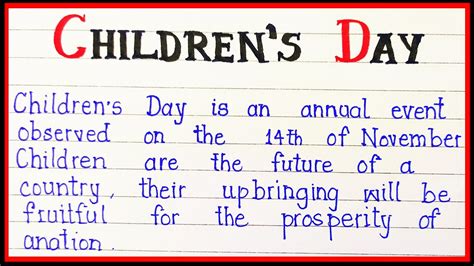 CHILDREN'S DAY
Children's Day is an annual event
observed on the 14th of November
Children are the future of a
country, their upbringing will be
fruitful for the prosperity of
anation.